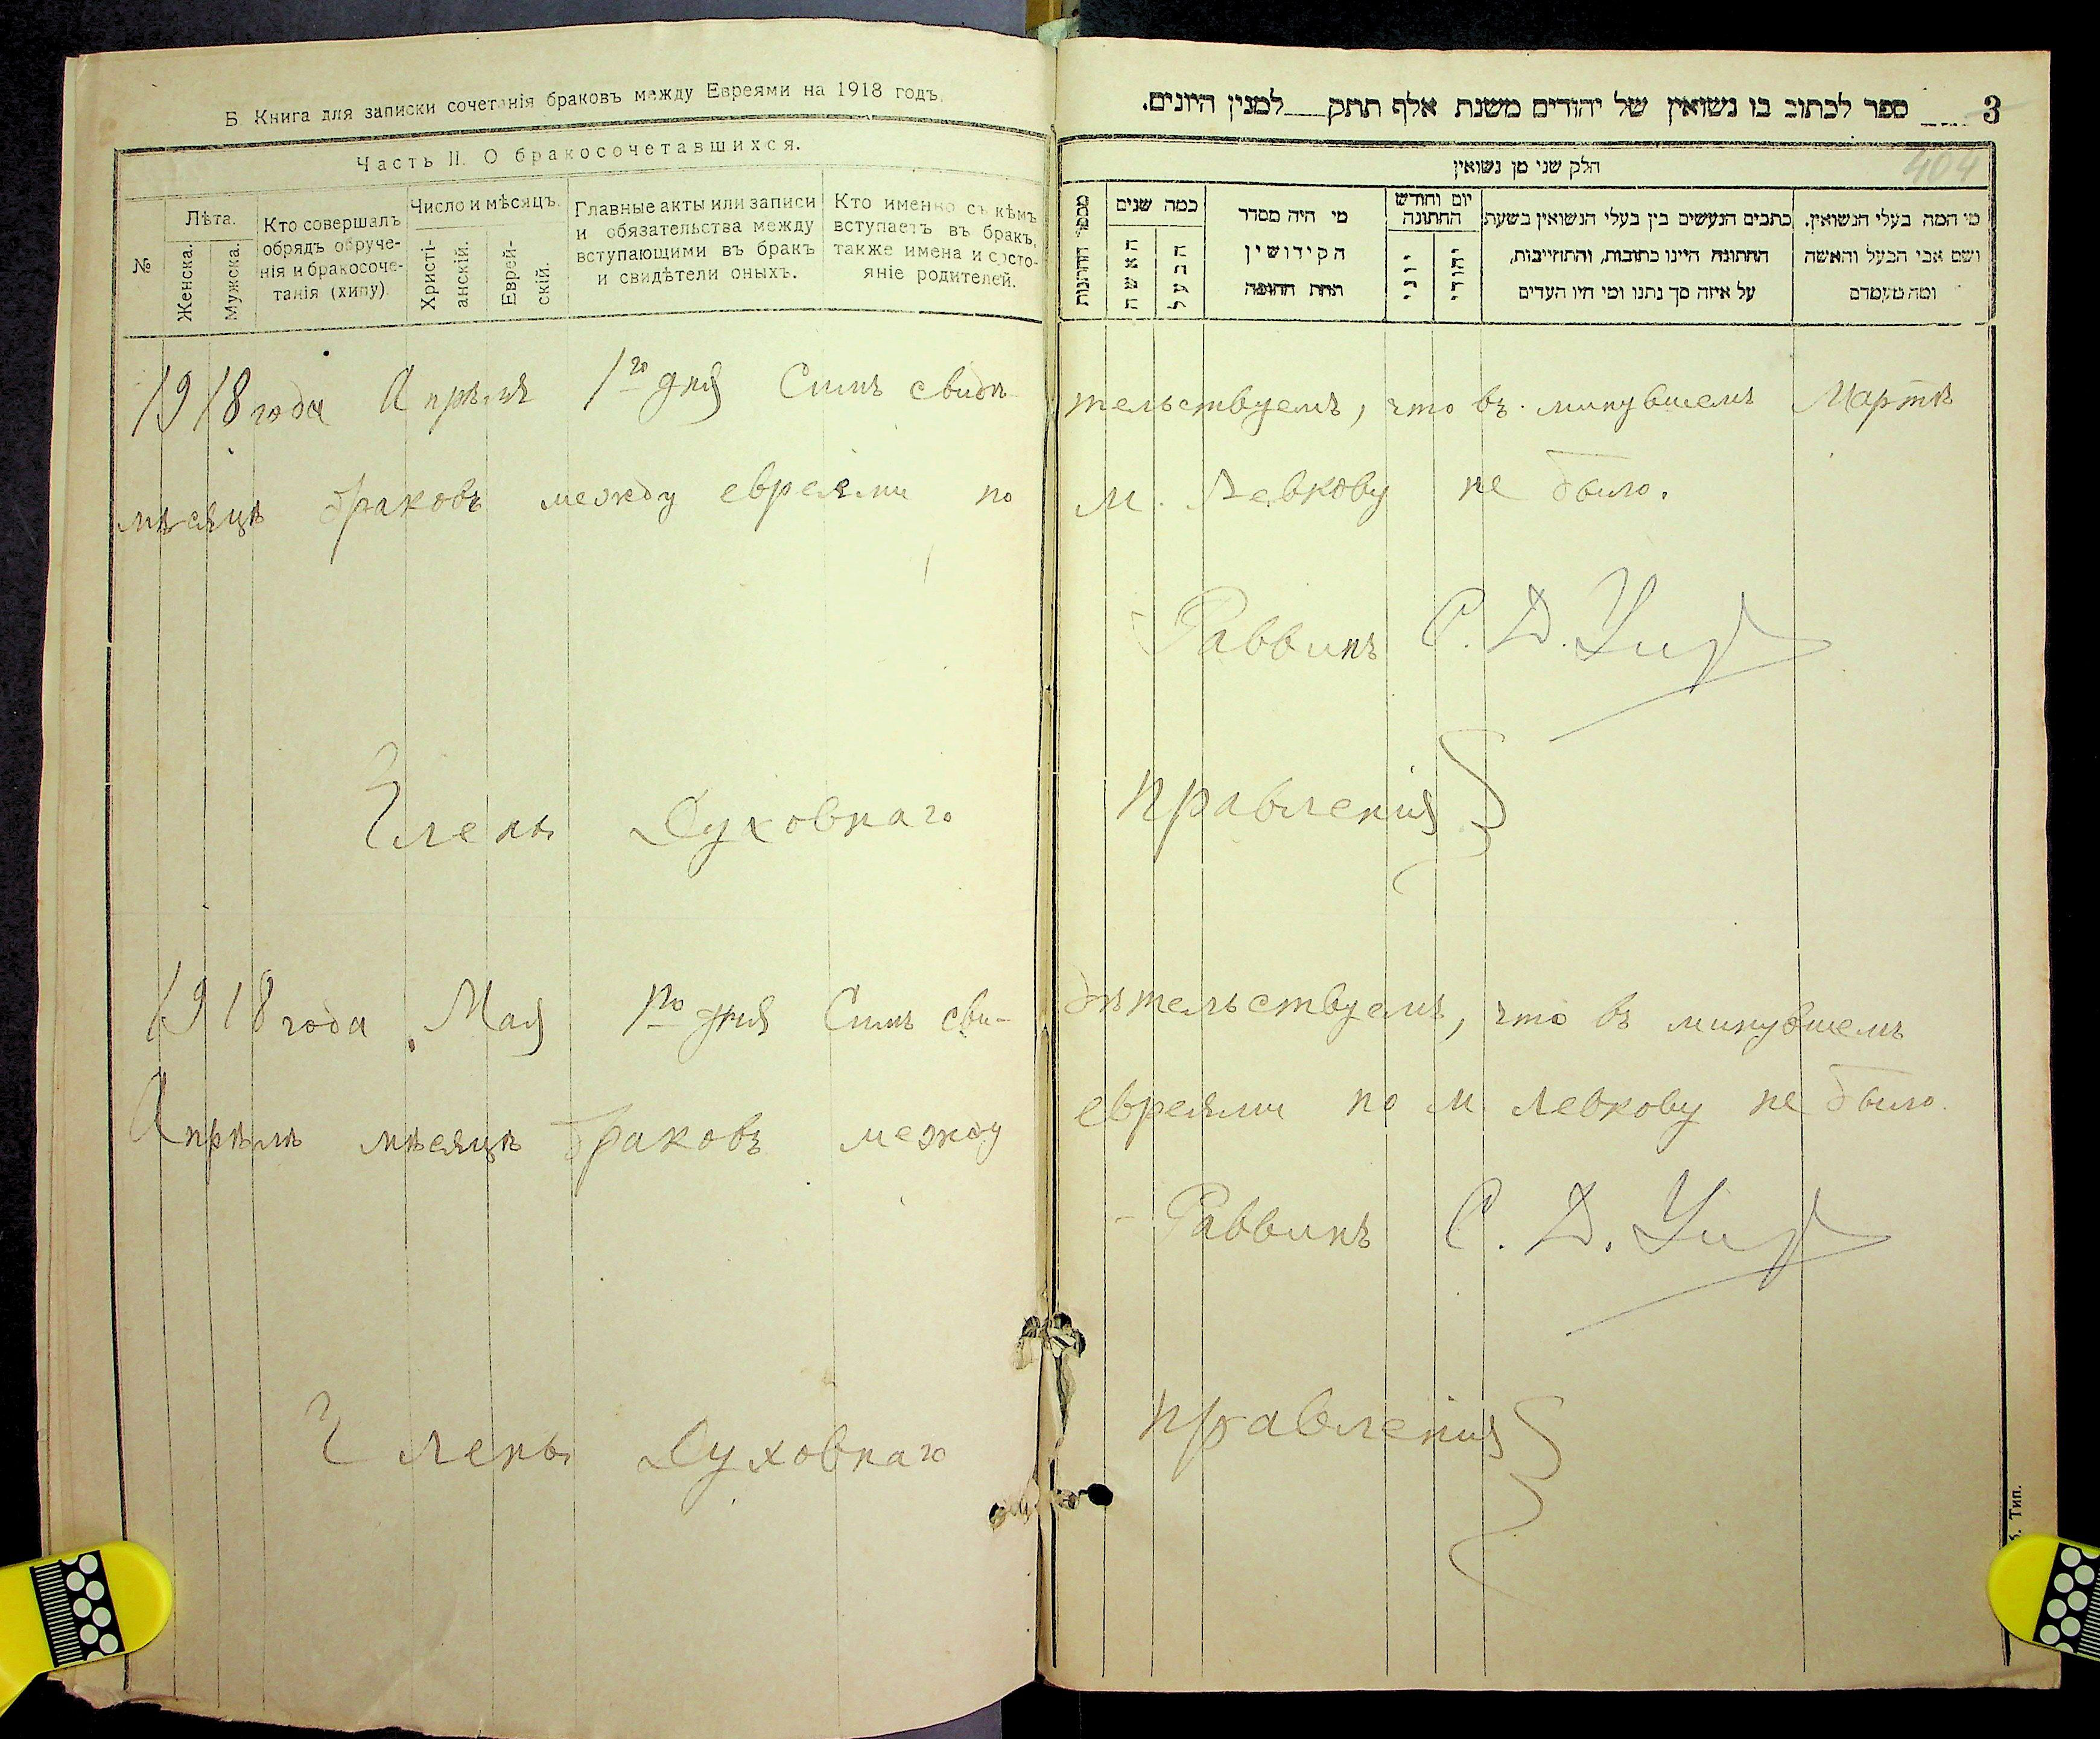 Б Книга для записки сочетанія браковъ между Евреями на 1918 годъ.
Часть II. О бракосочетавшихся.
№
Лѣта.
Женска.
Мужска.
Кто совершалъ
обрядъ обруче-
нія и бракосоче-
танія (хипу).
Число и мѣсяцъ.
Христі-
анскій.
Еврей-
скій.
Главные акты или записи
и обязательства между
вступающими въ бракъ
и свидѣтели оныхъ.
Кто именно съ кѣмъ
вступаетъ въ бракъ,
также имена и состо-
яніе родителей.
3
ספר לכתוב בו נשואין של יהודים משנת אלף תתק למנין היונים.
404
חלק שני מן נשואין
מי המה בעלי הנשואין.
ושם אבי הבעל והאשה
ומה מעמדם
כתבים הנעשים בין בעלי הנשואין בשעת
החתונה היינו כתובות, והתחייבות,
על איזה סך נתנו ומי היו העדים
יום וחודש
החתונה
יהודי
יוני
מי היה מסדר
הקידושין
תחת החופה
כמה שנים
הבעל
האשה
מספר החתונות
1918 года Апрѣля 1го дня Симъ свидѣ-
тельствуемъ, что въ минувшемъ Мартѣ
мѣсяцѣ браковъ между евреями по
м. Левкову не было.
Раввинъ С. Д.
Члены Духовнаго правленія
1918 года Мая 1го дня Симъ сви-
дѣтельствуемъ, что въ минувшемъ
Апрѣлѣ мѣсяцѣ браковъ между
евреями по м. Левкову не было.
Раввинъ С. Д.
Члены Духовнаго правленія
Тип.